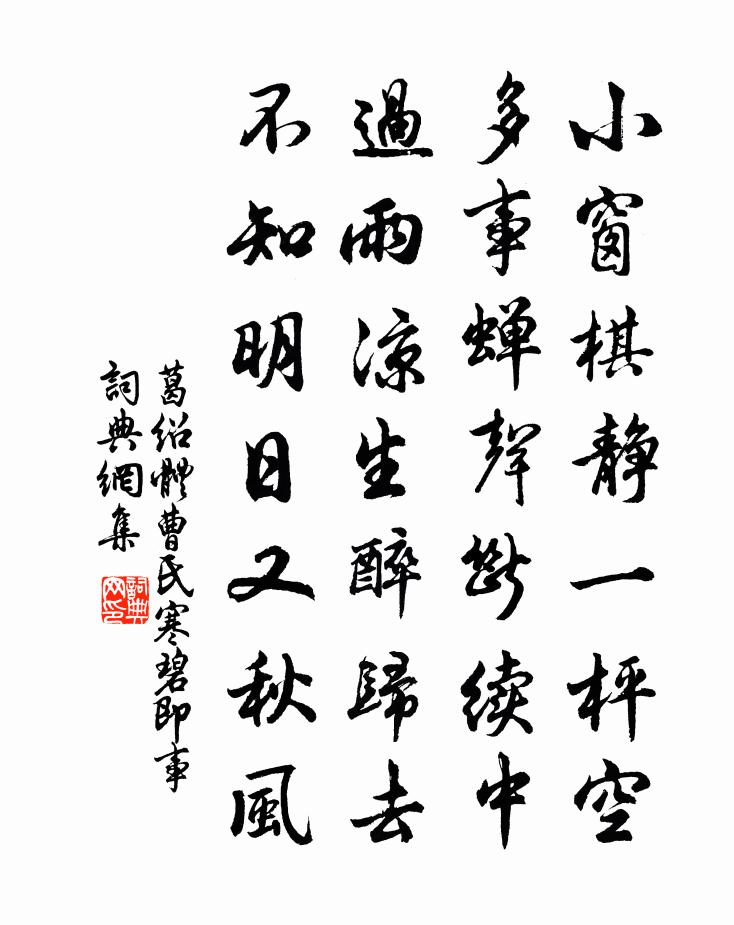 小窗棋静一枰空
多事蝉聲斷续中
過雨凉生醉歸去
不知明日又秋風
葛绍體曹氏寒碧即事
詞典網集
詞典网印